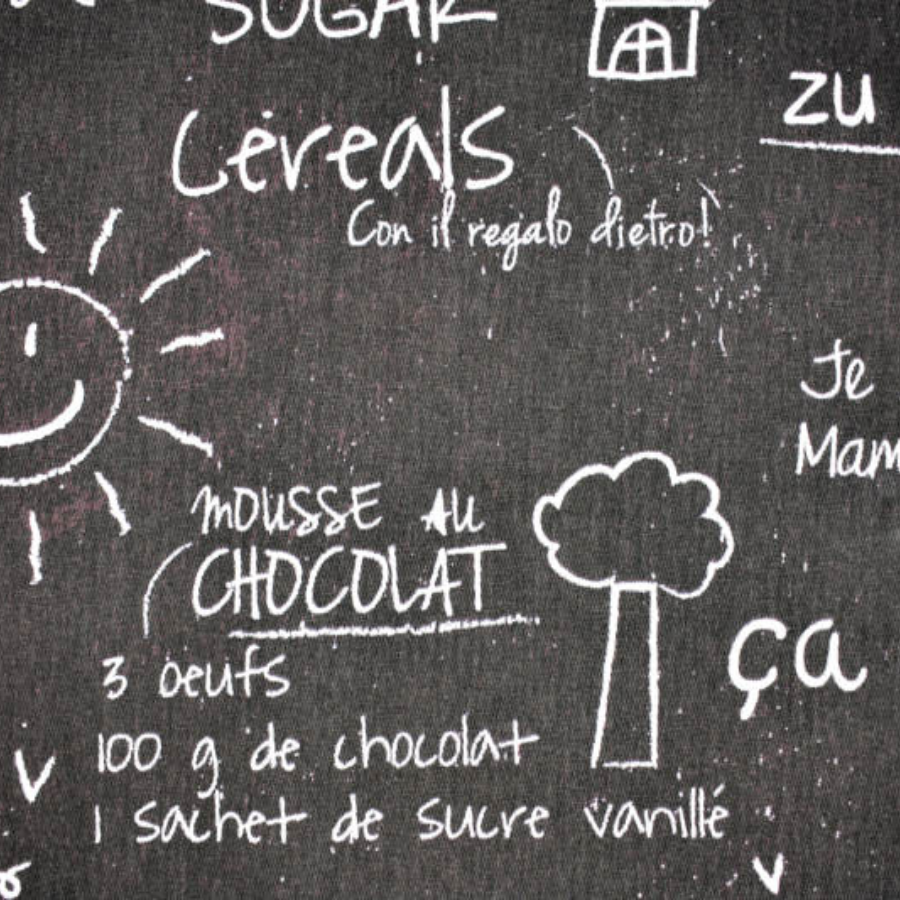 SUGAR
zu
Cereals
Con il regalo dietro!
Je
Mam
MOUSSE AU
CHOCOLAT
ça
3 oeufs
100 g de chocolat
1 sachet de sucre vanillé